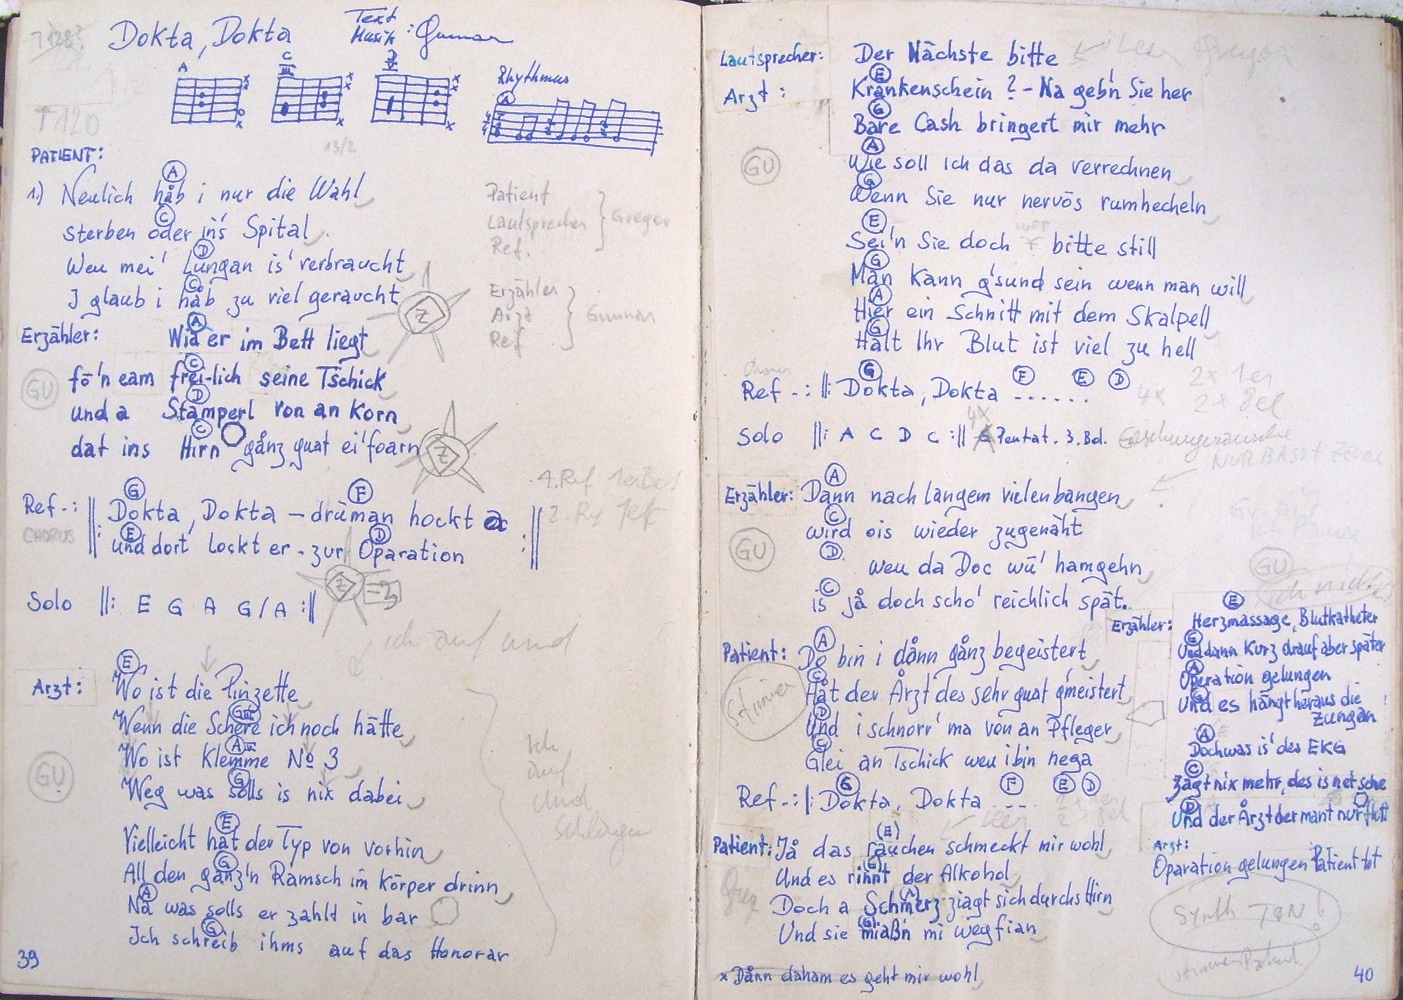 Dokta, Dokta
Text
Musik : Gunnar
A
C
III
D
V
Rhythmus
A
T 120
13/2
PATIENT:
A
1.) Neulich håb i nur die Wahl
C
sterben oder in's Spital
D
Weu mei' Lungan is' verbraucht
C
I glaub i håb zu viel geraucht
Patient
Lautsprecher
Ref.
Gregor
Erzähler
Arzt
Ref
Gunnar
Z
A
Erzähler: Wia er im Bett liegt
GU
C
fō'n eam frei-lich seine Tschick
D
und a Stamperl von an Korn
C
dat ins Hirn gånz guat ei'foarn
Z
G F
Ref.: ||: Dokta, Dokta – drüman hockt a
CHORUS
E D
und dort lockt er - zur Oparation :||
4. Ref
2. Ref
Z
Solo ||: E G A G/A :||
ich auf und
E
Arzt: Wo ist die Pinzette
G
Wenn die Schere ich noch hätte
A
Wo ist Klemme No 3
G
Weg was solls is nix dabei
GU
Ich
auf
und
Schlingen
E
Vielleicht hat der Typ von vorhin
G
All den gånz'n Ramsch im Körper drinn
A
Na was solls er zahlt in bar
G
Ich schreib ihms auf das Honorar
39
Lautsprecher: Der Nächste bitte
leer Gregor
E
Arzt: Krankenschein? - Na geb'n Sie her
G
Bare Cash bringert mir mehr
GU
A
Wie soll ich das da verrechnen
G
Wenn Sie nur nervös rumhecheln
E
Sei'n Sie doch bitte still
G
Man kann g'sund sein wenn man will
A
Hier ein Schnitt mit dem Skalpell
G
Hält Ihr Blut ist viel zu hell
G F E D
Ref.: ||: Dokta, Dokta ......
4x
2x 1er
2x
4x
Solo ||: A C D C :|| A Pentat. 3. Bd.
NUR BASS +
A
Erzähler: Dann nach langem vielen bangen
C
wird ois wieder zugenäht
GU
D
weu da Doc wü' hamgehn
C
is jå doch scho' reichlich spät.
A
Patient: Do bin i dånn gånz begeistert
C
Håt der Årzt des sehr guat g'meistert
D
Und i schnorr' ma von an Pfleger
C
Glei an Tschick weu i bin nega
G F E D
Ref.: ||: Dokta, Dokta ....
leer
(E)
Patient: Jå das rauchen schmeckt mir wohl
(G)
Und es rinnt der Alkohol
(A)
Doch a Schmerz ziagt sich durchs Hirn
(G)
Und sie miaßn mi wegfian
x Dånn daham es geht mir wohl
GU
ich nicht
E
Erzähler: Herzmassage, Blutkatheter
G
Und dann kurz drauf aber später
A
Operation gelungen
G
Und es hängt heraus die
Zungan
A
Doch was is' des EKG
C
Zagt nix mehr, des is net sche
D
Und der Årzt der mant nur
Arzt:
Oparation gelungen Patient tot
Synth TON!
40